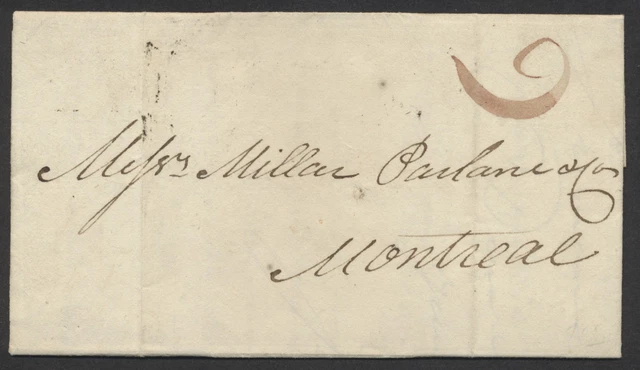 Messrs Millar Parlane & Co
Montreal